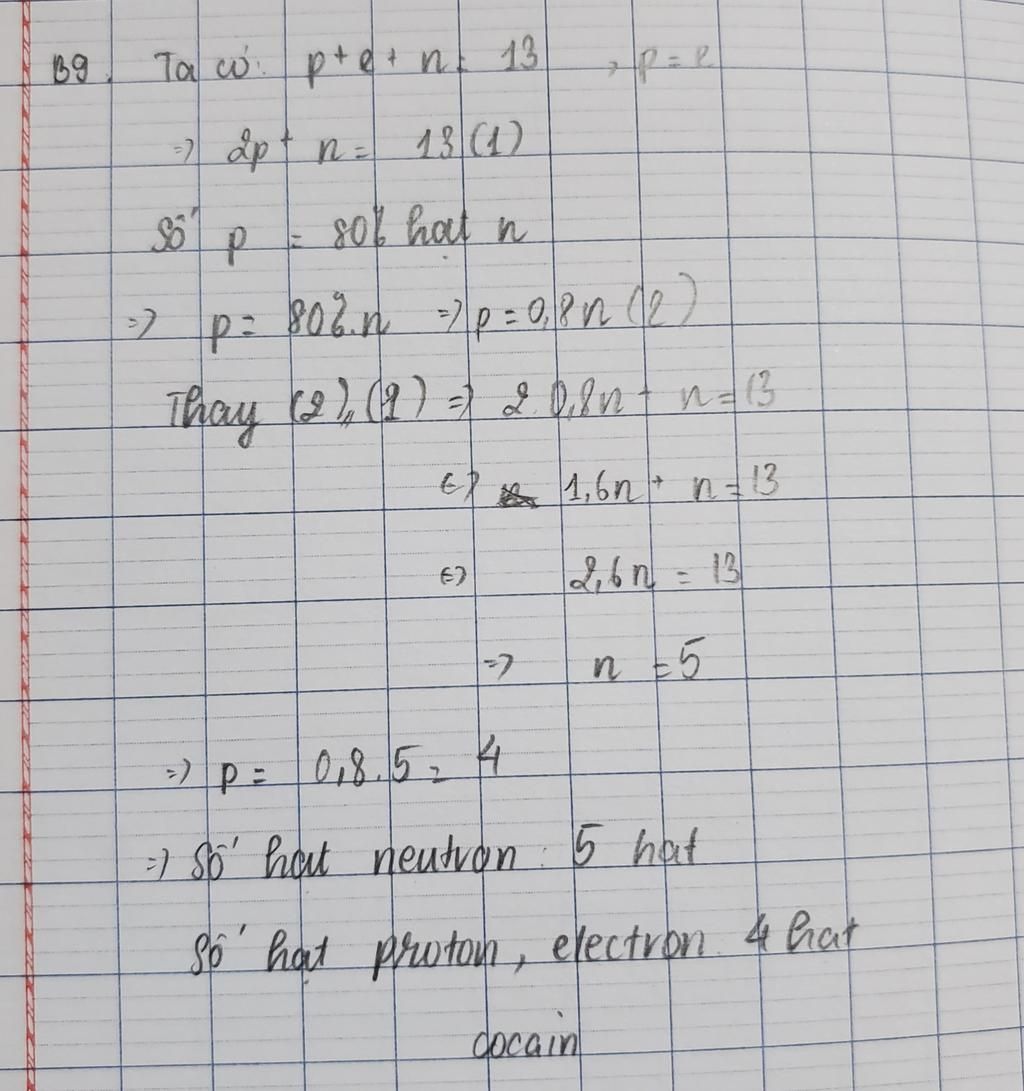 B9. Ta có: p + e + n = 13 , p = e
=> 2p + n = 13 (1)
Số p = 80% hạt n
=> p = 80%.n => p = 0,8n (2)
Thay (2), (1) => 2.0,8n + n = 13
<=> 1,6n + n = 13
<=> 2,6n = 13
=> n = 5
=> p = 0,8.5 = 4
=> Số hạt neutron : 5 hạt
Số hạt proton, electron : 4 hạt
cocain